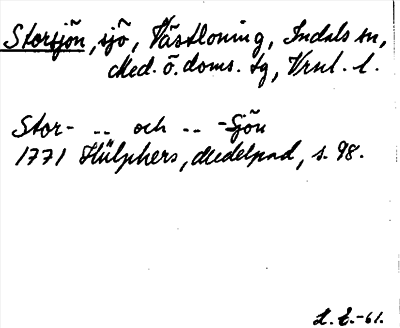 Storsjön, sjö, Västloning, Indals sn,
Med. ö. doms. tg, Vrnl. l.
Stor- .. och .. -Sjön
1771 Hülphers, Medelpad, s. 98.
L. E. -61.